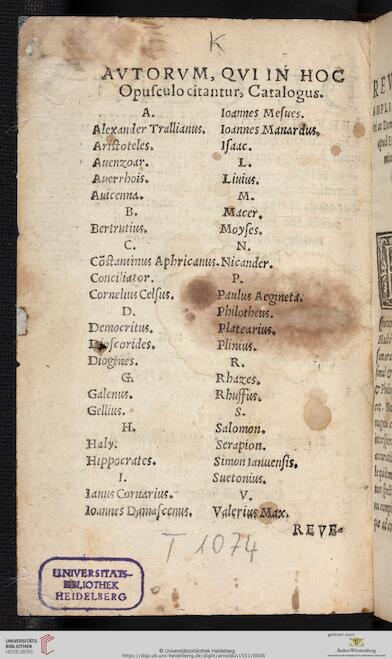 K
AVTORVM, QVI IN HOC
Opusculo citantur, Catalogus.
A.
Alexander Trallianus.
Aristoteles.
Auenzoar.
Auerrhois.
Auicenna.
B.
Bertrutius.
C.
Cõstantinus Aphricanus.
Conciliator.
Cornelius Celsus.
D.
Democritus.
Dioscorides.
Diogenes.
G.
Galenus.
Gellius.
H.
Haly.
Hippocrates.
I.
Ianus Cornarius.
Ioannes Damascenus.
Ioannes Mesues.
Ioannes Manardus.
Isaac.
L.
Liuius.
M.
Macer.
Moyses.
N.
Nicander.
P.
Paulus Aegineta.
Philotheus.
Platearius.
Plinius.
R.
Rhazes.
Rhuffus.
S.
Salomon.
Serapion.
Simon Ianuensis.
Suetonius.
V.
Valerius Max.
REVE-
T 1074
UNIVERSITÄTS-
BIBLIOTHEK
HEIDELBERG
UNIVERSITÄTS-
BIBLIOTHEK
HEIDELBERG
© Universitätsbibliothek Heidelberg
https://digi.ub.uni-heidelberg.de/diglit/arnoldus1551/0006
gefördert durch
Baden-Württemberg